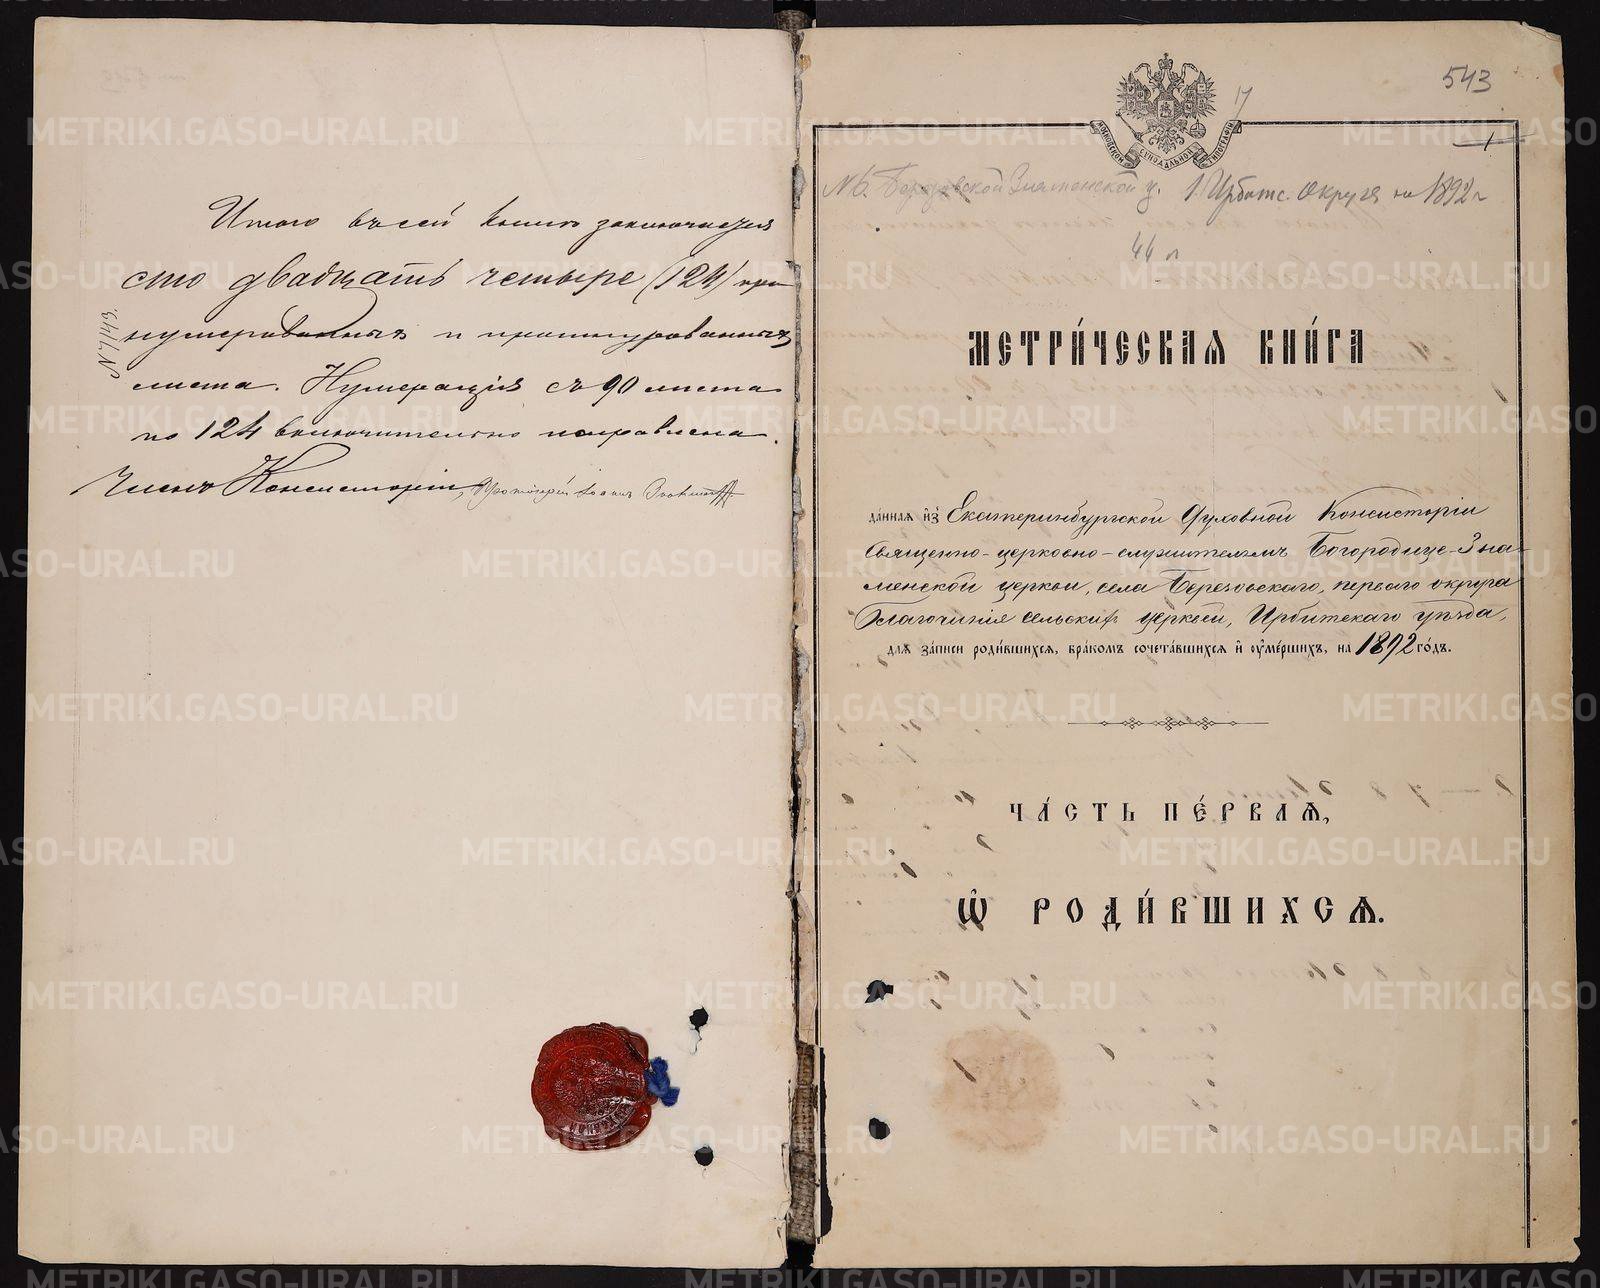 Итого въ сей книгѣ заключается
сто двадцать четыре (124) про
нумерованныхъ и прошнурованныхъ
листа. Нумерація съ 90 листа
по 124 включительно исправлена.
Членъ Консисторіи, Протоіерей Іоаннъ
543
17
1
МОСКОВСКОЙ СѴНОДАЛЬНОЙ ТИПОГРАФІИ
№6. Березовской Знаменской ц. 1 Ирбитс. округа на 1892 г
44 л
МЕТРИ́ЧЕСКАѦ КНИ́ГА
да́ннаѧ и҆зъ Екатеринбургской Духовной Консисторіи
Священно-церковно-служителямъ Богородице-Зна-
менской церкви, села Березовскаго, перваго округа
Благочинія сельскихъ церквей, Ирбитскаго уѣзда,
длѧ за́писи роди́вшихсѧ, бра́комъ сочета́вшихсѧ и҆ ᲂу҆ме́ршихъ, на 1892 го́дъ.
ЧА́СТЬ ПЕ́РВАѦ,
Ѡ҆ РОДИ́ВШИХСѦ.
METRIKI.GASO-URAL.RU